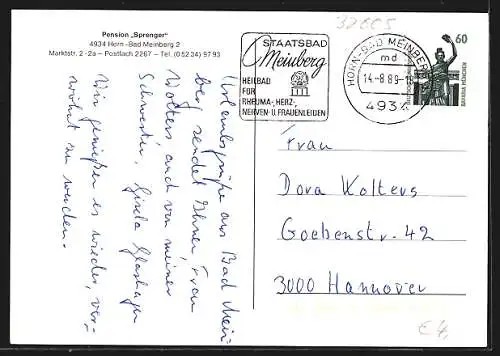 Pension „Sprenger"
4934 Horn-Bad Meinberg 2
Marktstr. 2-2a – Postfach 2267 – Tel. (0 52 34) 97 93
32605
STAATSBAD
Meinberg
HEILBAD
FÜR
RHEUMA-, HERZ-,
NERVEN- U. FRAUENLEIDEN
HORN-BAD MEINBERG
md
14.-8.89.-1
4934
60
BAVARIA MÜNCHEN
Urlaubsgrüße aus Bad Mein-
berg sendet Ihnen, Frau
Wolters, auch von meiner
Schwester, Gisela
Wir genießen es wieder, ver-
wöhnt zu werden.
Frau
Dora Wolters
Goebenstr. 42
3000 Hannover
€ 4,